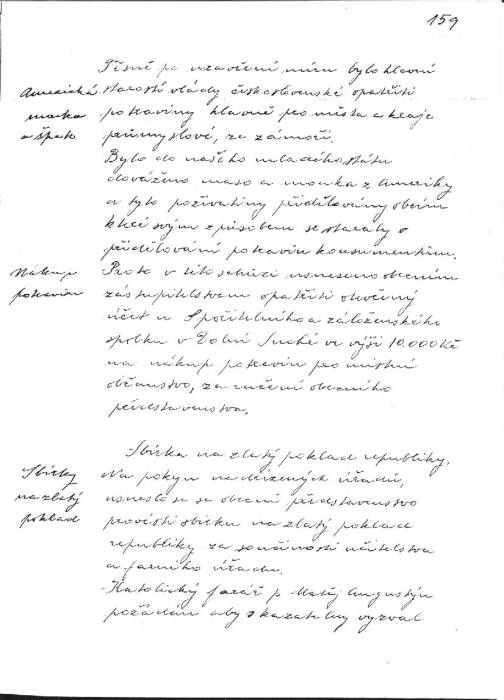 159
Těsně po uzavření míru bylo hlavní
Americká
mouka
a špeck
starostí vlády československé opatřiti
potraviny hlavně pro města a kraje
průmyslové, ze zámoří.
Bylo do našeho mladého státu
dováženo maso a mouka z Ameriky
a tyto poživatiny přidělovány obcím
které svým způsobem se staraly o
přidělování potravin konsumentům.
Nákup
potravin
Proto v této schůzi usneseno obecním
zastupitelstvem opatřiti otevřený
účet u Spořitelního a záloženského
spolku v Dolní Suché ve výši 10.000 Kč
na nákup potravin pro místní
občanstvo, za ručení obecního
představenstva.
Sbírka na zlatý poklad republiky.
Sbírky
na zlatý
poklad
Na pokyn nadřízených úřadů,
usneslo se se obecní představenstvo
provésti sbírku na zlatý poklad
republiky za součinnosti učitelstva
a farního úřadu.
Katolický farář p. Matěj Augustýn
požádán aby s kazatelny vyzval